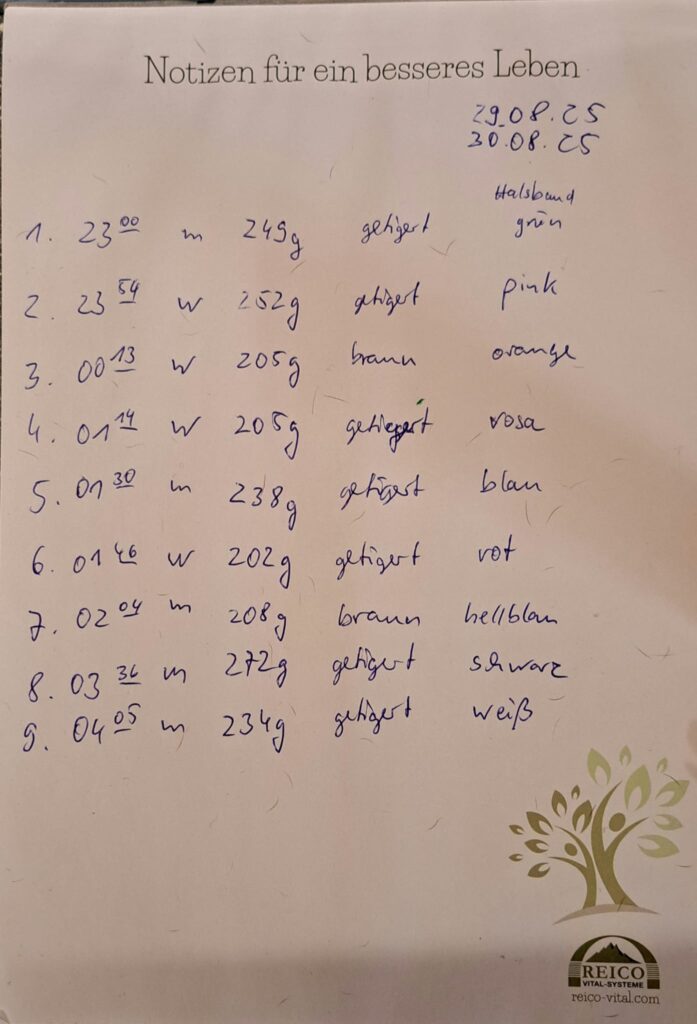 Notizen für ein besseres Leben
29.08.25
30.08.25
Halsband
1. 23 00 m 249g getigert grün
2. 23 54 w 252g getigert pink
3. 00 13 w 205g braun orange
4. 01 14 w 205g getiegert rosa
5. 01 30 m 238g getigert blau
6. 01 46 w 202g getigert rot
7. 02 04 m 208g braun hellblau
8. 03 36 m 272g getigert schwarz
9. 04 05 m 234g getigert weiß
REICO
VITAL-SYSTEME
reico-vital.com